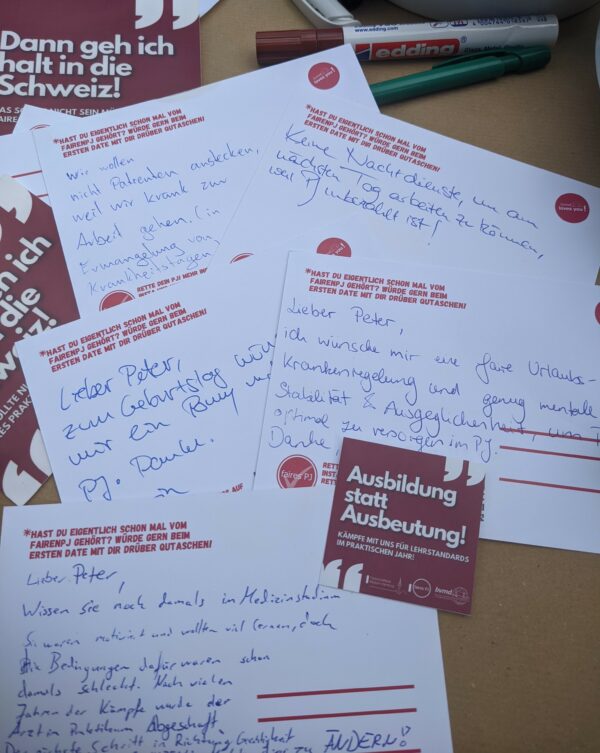 Dann geh ich
halt in die
Schweiz!
edding
loves you!
*HAST DU EIGENTLICH SCHON MAL VOM
FAIRENPJ GEHÖRT? WÜRDE GERN BEIM
ERSTEN DATE MIT DIR DRÜBER QUTASCHEN!
Keine Nachtdienste, um am
nächsten Tag arbeiten zu können,
weil PJ unbezahlt ist!
*HAST DU EIGENTLICH SCHON MAL VOM
FAIRENPJ GEHÖRT? WÜRDE GERN BEIM
ERSTEN DATE MIT DIR DRÜBER QUTASCHEN!
Wir wollen
nicht Patienten anstecken,
weil wir krank zur
Arbeit gehen. (in
Ermangelung von
Krankheitstagen
RETTE DEIN PJ! MEHR
n ich
die
eiz!
*HAST DU EIGENTLICH SCHON MAL VOM
FAIRENPJ GEHÖRT? WÜRDE GERN BEIM
ERSTEN DATE MIT DIR DRÜBER QUTASCHEN!
Lieber Peter,
zum Geburtstag
mir ein Pony
PJ. Danke.
*HAST DU EIGENTLICH SCHON MAL VOM
FAIRENPJ GEHÖRT? WÜRDE GERN BEIM
ERSTEN DATE MIT DIR DRÜBER QUTASCHEN!
Lieber Peter,
ich wünsche mir eine faire Urlaubs-
Krankenregelung und genug mentale
Stabilität & Ausgeglichenheit, um
optimal zu versorgen im PJ.
Danke
faires PJ
RETT
Ausbildung
statt
Ausbeutung!
KÄMPFE MIT UNS FÜR LEHRSTANDARDS
IM PRAKTISCHEN JAHR!
bvmd
*HAST DU EIGENTLICH SCHON MAL VOM
FAIRENPJ GEHÖRT? WÜRDE GERN BEIM
ERSTEN DATE MIT DIR DRÜBER QUTASCHEN!
Lieber Peter,
Wissen Sie noch damals im Medizinstudium
Sie waren motiviert und wollten viel lernen, doch
Die Bedingungen dafür waren schon
damals schlecht. Nach vielen
Jahren der Kämpfe wurde der
Arzt im Praktikum Abgeschafft
Der nächste Schritt in Richtung Gerechtigkeit
zu ÄNDERN!